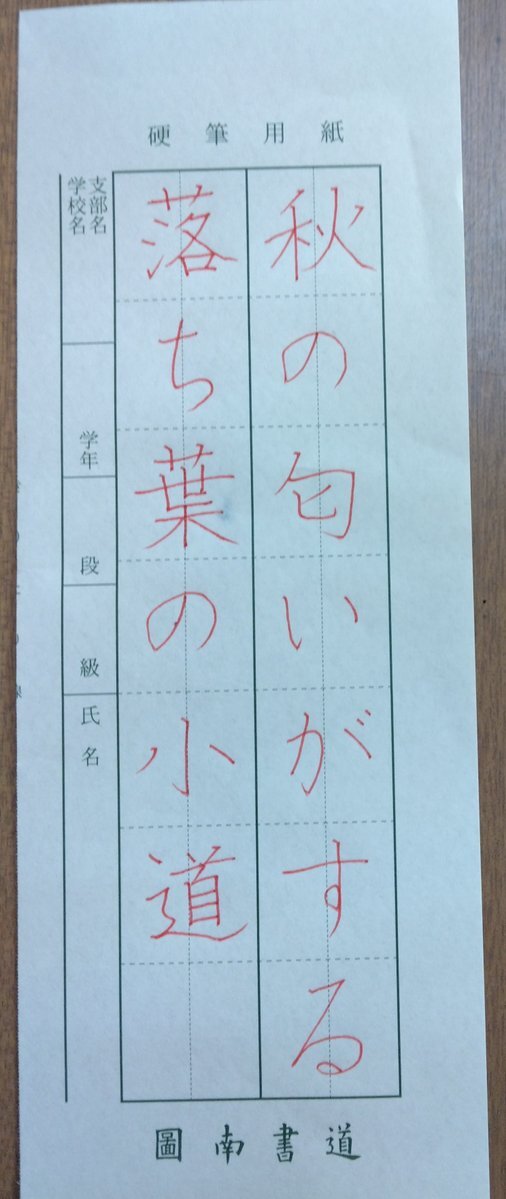 硬筆用紙
秋の匂いがする
落ち葉の小道
支部名
学校名
学年
段
級
氏名
圖南書道